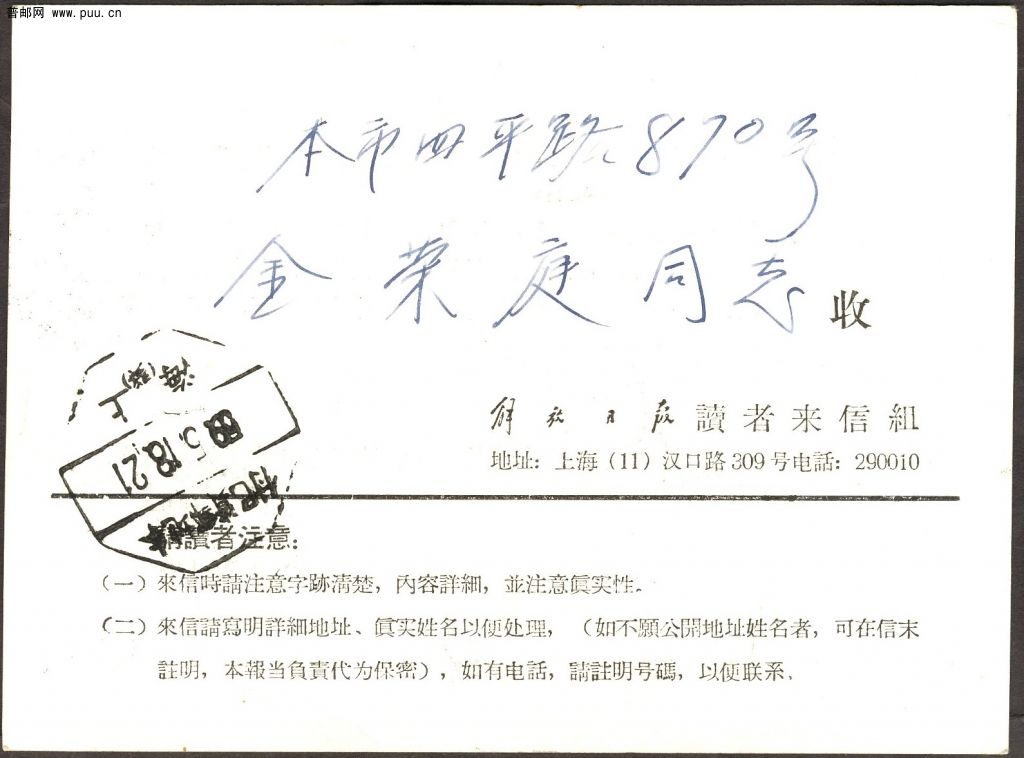 普邮网 www.puu.cn
本市四平路870号
金荣庭同志收
解放日报 讀者来信組
地址：上海（11）汉口路309号电話：290010
上海
5.18.21
請讀者注意：
（一）來信時請注意字跡清楚，內容詳細，並注意眞实性。
（二）來信請寫明詳細地址、眞实姓名以便处理，（如不願公開地址姓名者，可在信末
註明，本報当負責代为保密），如有电話，請註明号碼，以便联系。